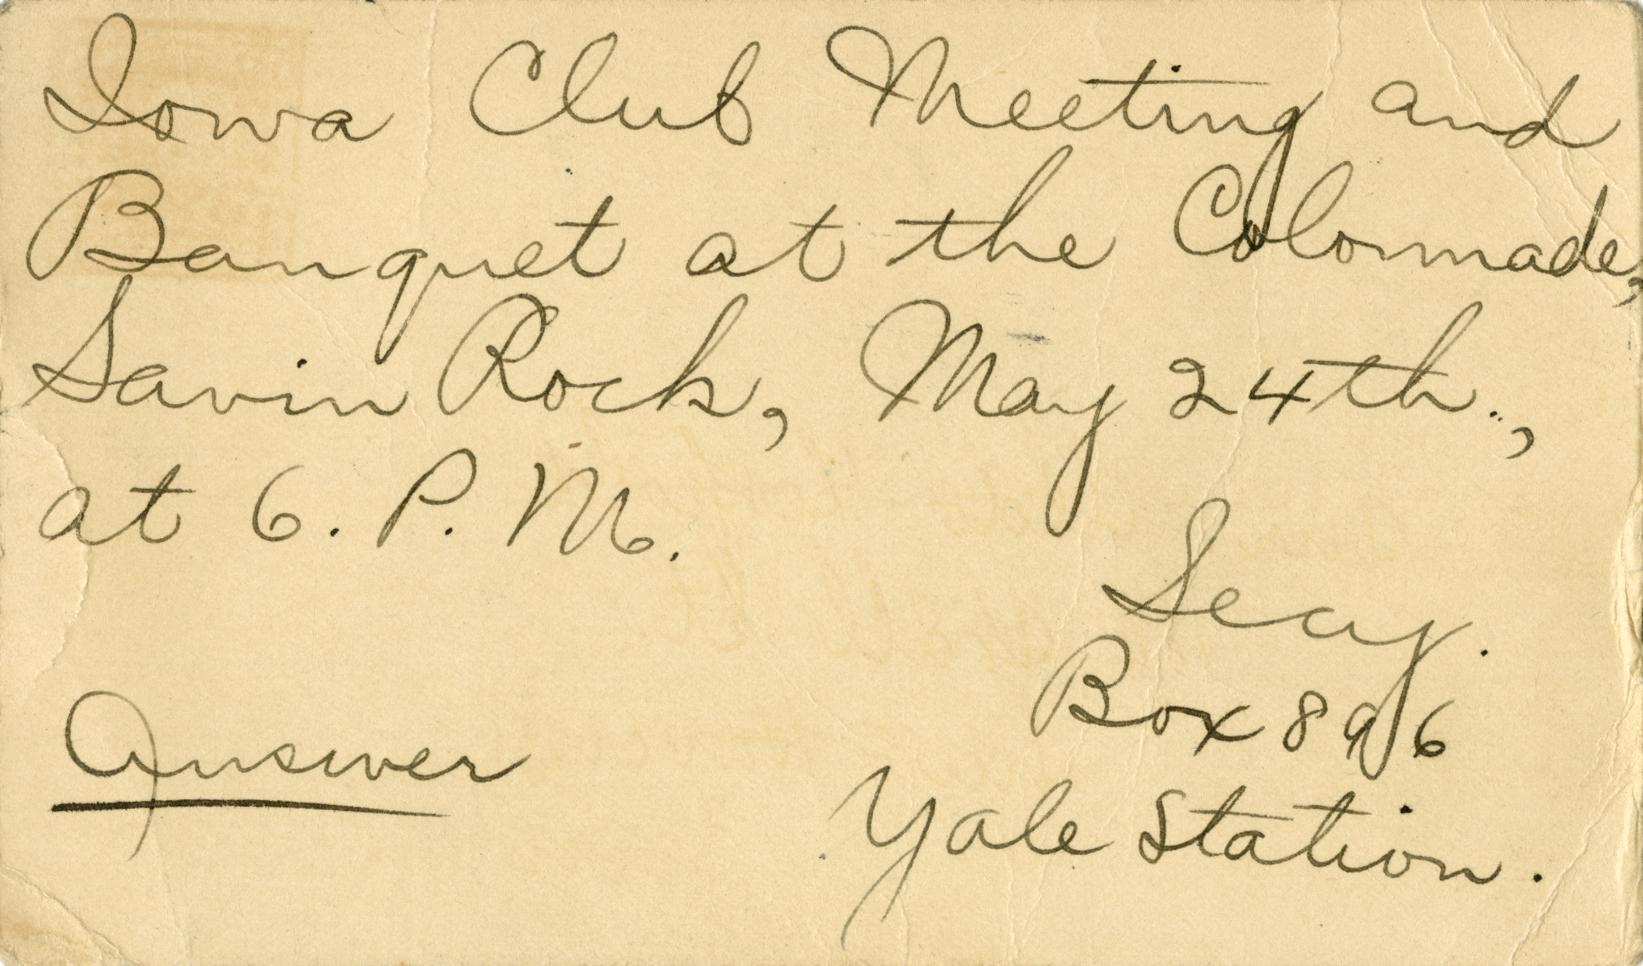 Iowa Club Meeting and
Banquet at the Colonnade,
Savin Rock, May 24th.,
at 6. P. M.
Secy.
Box 896
Answer
Yale Station.